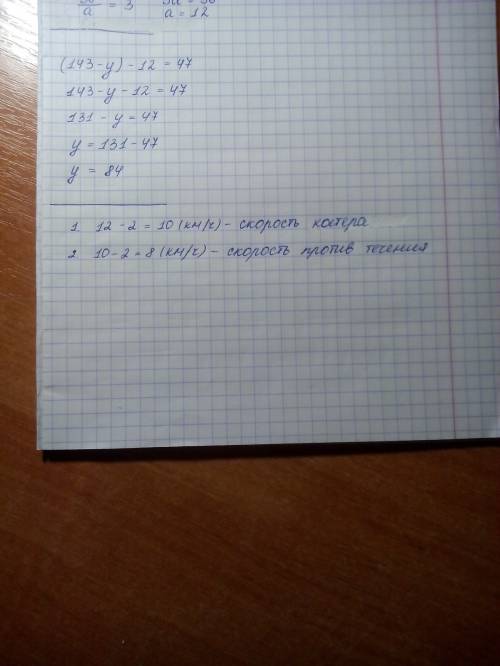 a = 3
a = 12
(143-y)-12=47
143-y-12=47
131-y=47
y=131-47
y = 84
1. 12-2=10(км/ч)- скорость катера
2. 10-2=8(км/ч)- скорость против течения